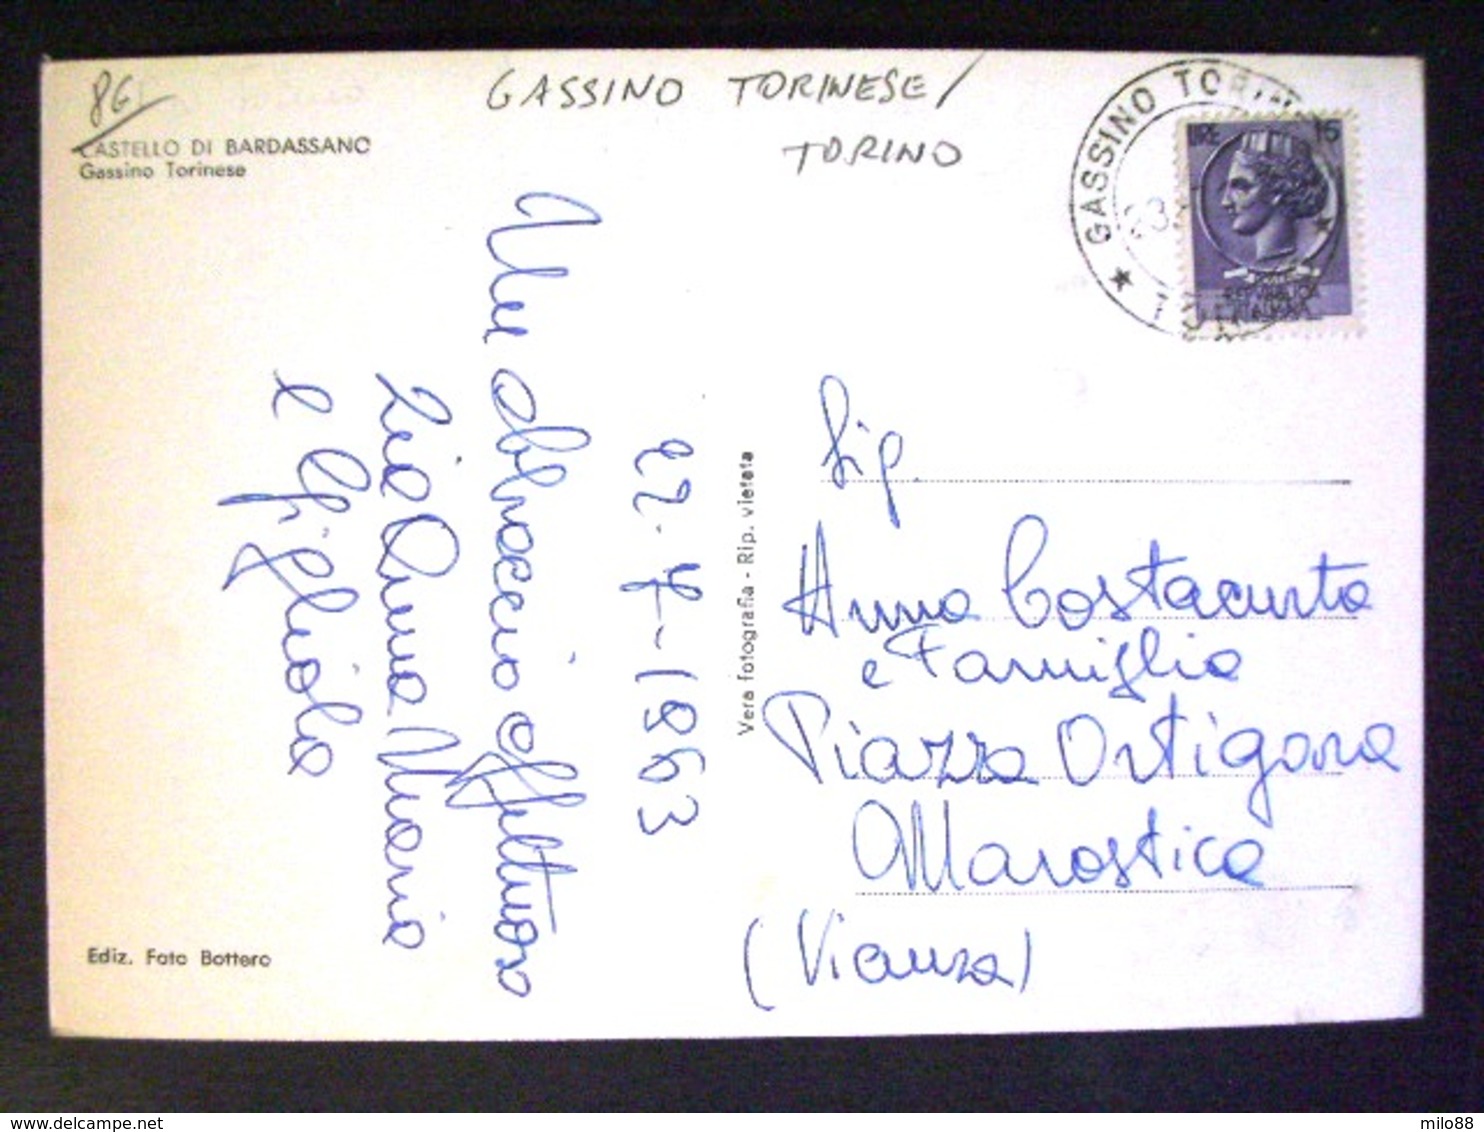 86
GASSINO TORINESE/
TORINO
CASTELLO DI BARDASSANO
Gassino Torinese
GASSINO TORIN
23
LIRE 15
REPUBBLICA
ITALIANA
22-7-1963
Un abbraccio affettuoso
Zia Anna Maria
e figliola
Vera fotografia - Rip. vietata
Sig.
Anna Costacurta
e Famiglia
Piazza Ortigara
Marostica
(Vicenza)
Ediz. Foto Bottero
delcampe.net
milo88